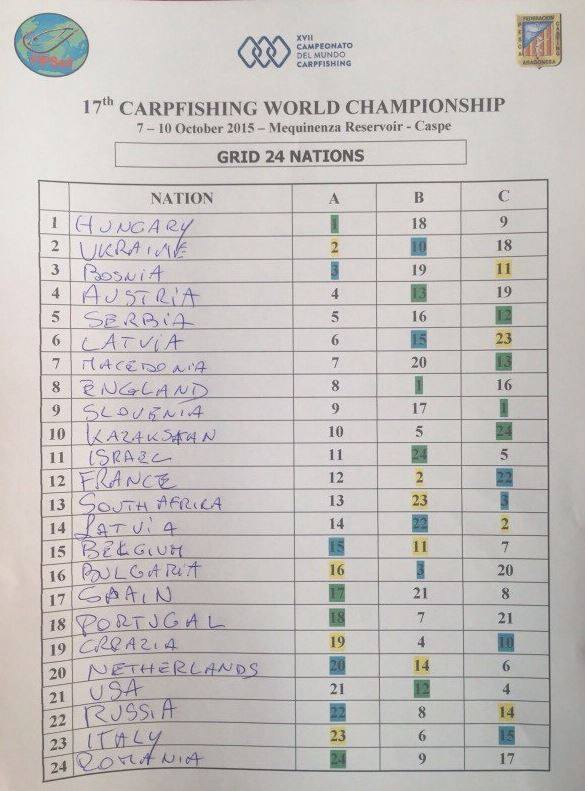 FIPSed
XVII
CAMPEONATO
DEL MUNDO
CARPFISHING
FEDERACION
PESCA
CASTING
ARAGONESA
17th CARPFISHING WORLD CHAMPIONSHIP
7 – 10 October 2015 – Mequinenza Reservoir - Caspe
GRID 24 NATIONS
NATION A B C
1 HUNGARY 1 18 9
2 UKRAINE 2 10 18
3 BOSNIA 3 19 11
4 AUSTRIA 4 13 19
5 SERBIA 5 16 12
6 LATVIA 6 15 23
7 MACEDONIA 7 20 13
8 ENGLAND 8 1 16
9 SLOVENIA 9 17 1
10 KAZAKSTAN 10 5 24
11 ISRAEL 11 24 5
12 FRANCE 12 2 22
13 SOUTH AFRIKA 13 23 3
14 LATVIA 14 22 2
15 BELGIUM 15 11 7
16 BULGARIA 16 3 20
17 SPAIN 17 21 8
18 PORTUGAL 18 7 21
19 CROAZIA 19 4 10
20 NETHERLANDS 20 14 6
21 USA 21 12 4
22 RUSSIA 22 8 14
23 ITALY 23 6 15
24 ROMANIA 24 9 17